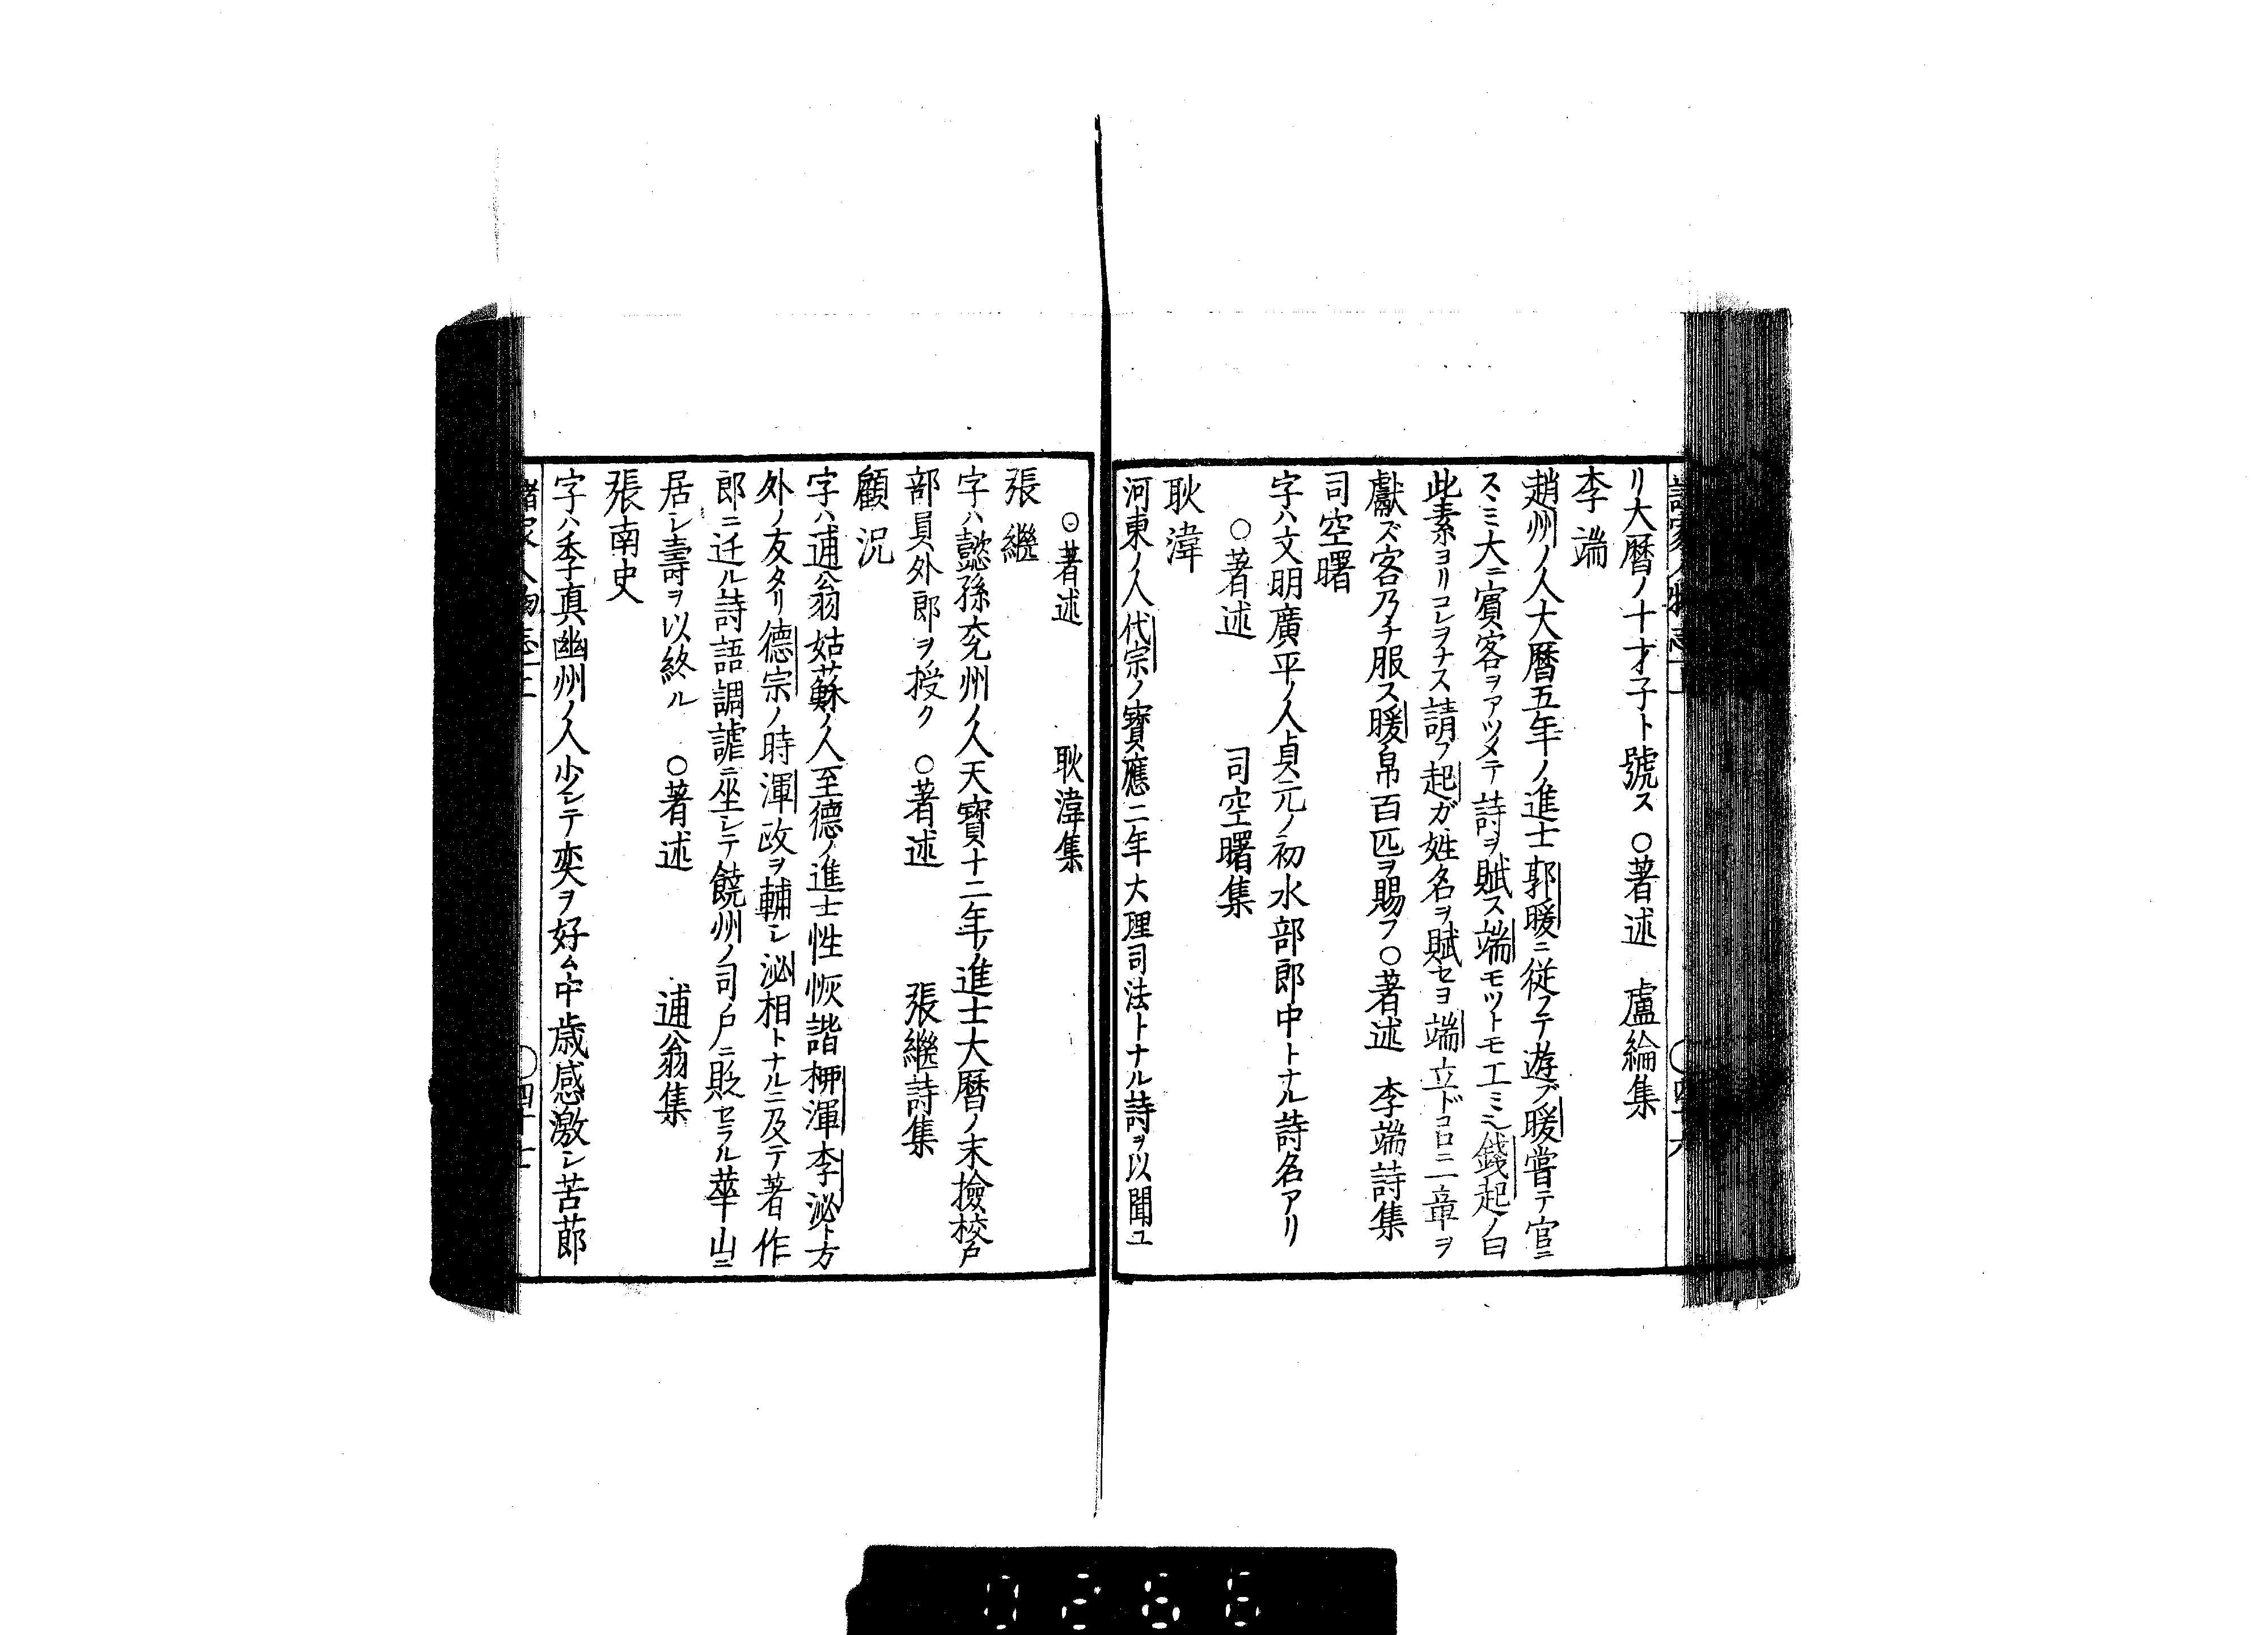 リ大暦ノ十才子ト號ス ○著述 盧綸集
李端
趙州ノ人大暦五年ノ進士郭曖ニ従フテ遊ブ曖嘗テ官ニ
スミ大ニ賓客ヲアツメテ詩ヲ賦ス端モツトモ工ミ也錢起ノ曰
此素ヨリコレヲナス請フ起ガ姓名ヲ賦セヨ端立ドコロニ一章ヲ
獻ズ客乃チ服ス曖帛百匹ヲ賜フ ○著述 李端詩集
司空曙
字ハ文明廣平ノ人貞元ノ初水部郎中トナル詩名アリ
○著述 司空曙集
耿湋
河東ノ人代宗ノ寶應二年大理司法トナル詩ヲ以聞ユ
○著述 耿湋集
張繼
字ハ懿孫兖州ノ人天寶十二年ノ進士大暦ノ末撿校戸
部員外郎ヲ授ク ○著述 張繼詩集
顧况
字ハ逋翁姑蘇ノ人至德ノ進士性恢諧栁渾李泌ト方
外ノ友タリ德宗ノ時渾政ヲ輔シ泌相トナルニ及テ著作
郎ニ迁ル詩語調謔ニ坐シテ饒州ノ司ノ戸ニ貶セラル華山ニ
居シ壽ヲ以終ル ○著述 逋翁集
張南史
字ハ季真幽州ノ人少シテ奕ヲ好ム中歳感激シ苦莭